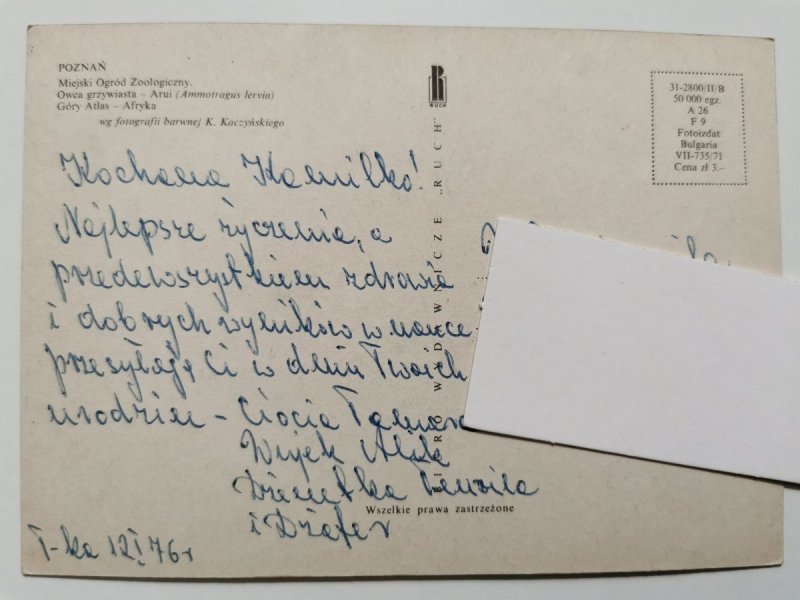 POZNAŃ
Miejski Ogród Zoologiczny.
Owca grzywiasta – Arui (Ammotragus lervia)
Góry Atlas – Afryka
wg fotografii barwnej K. Kaczyńskiego
Kochana Kamilko!
Najlepsze życzenia, a
przedewszystkiem zdrowia
i dobrych wyników w nauce
przesyłają Ci w dniu Twoich
urodzin – Ciocia
Wujek
i Džafer
T-ka 12 I 76 r
RUCH
WYDAWNICZE „RUCH”
31-2800/II/B
50 000 egz.
A 26
F 9
Fotoizdat
Bulgaria
VII-735/71
Cena zł 3.–
Wszelkie prawa zastrzeżone